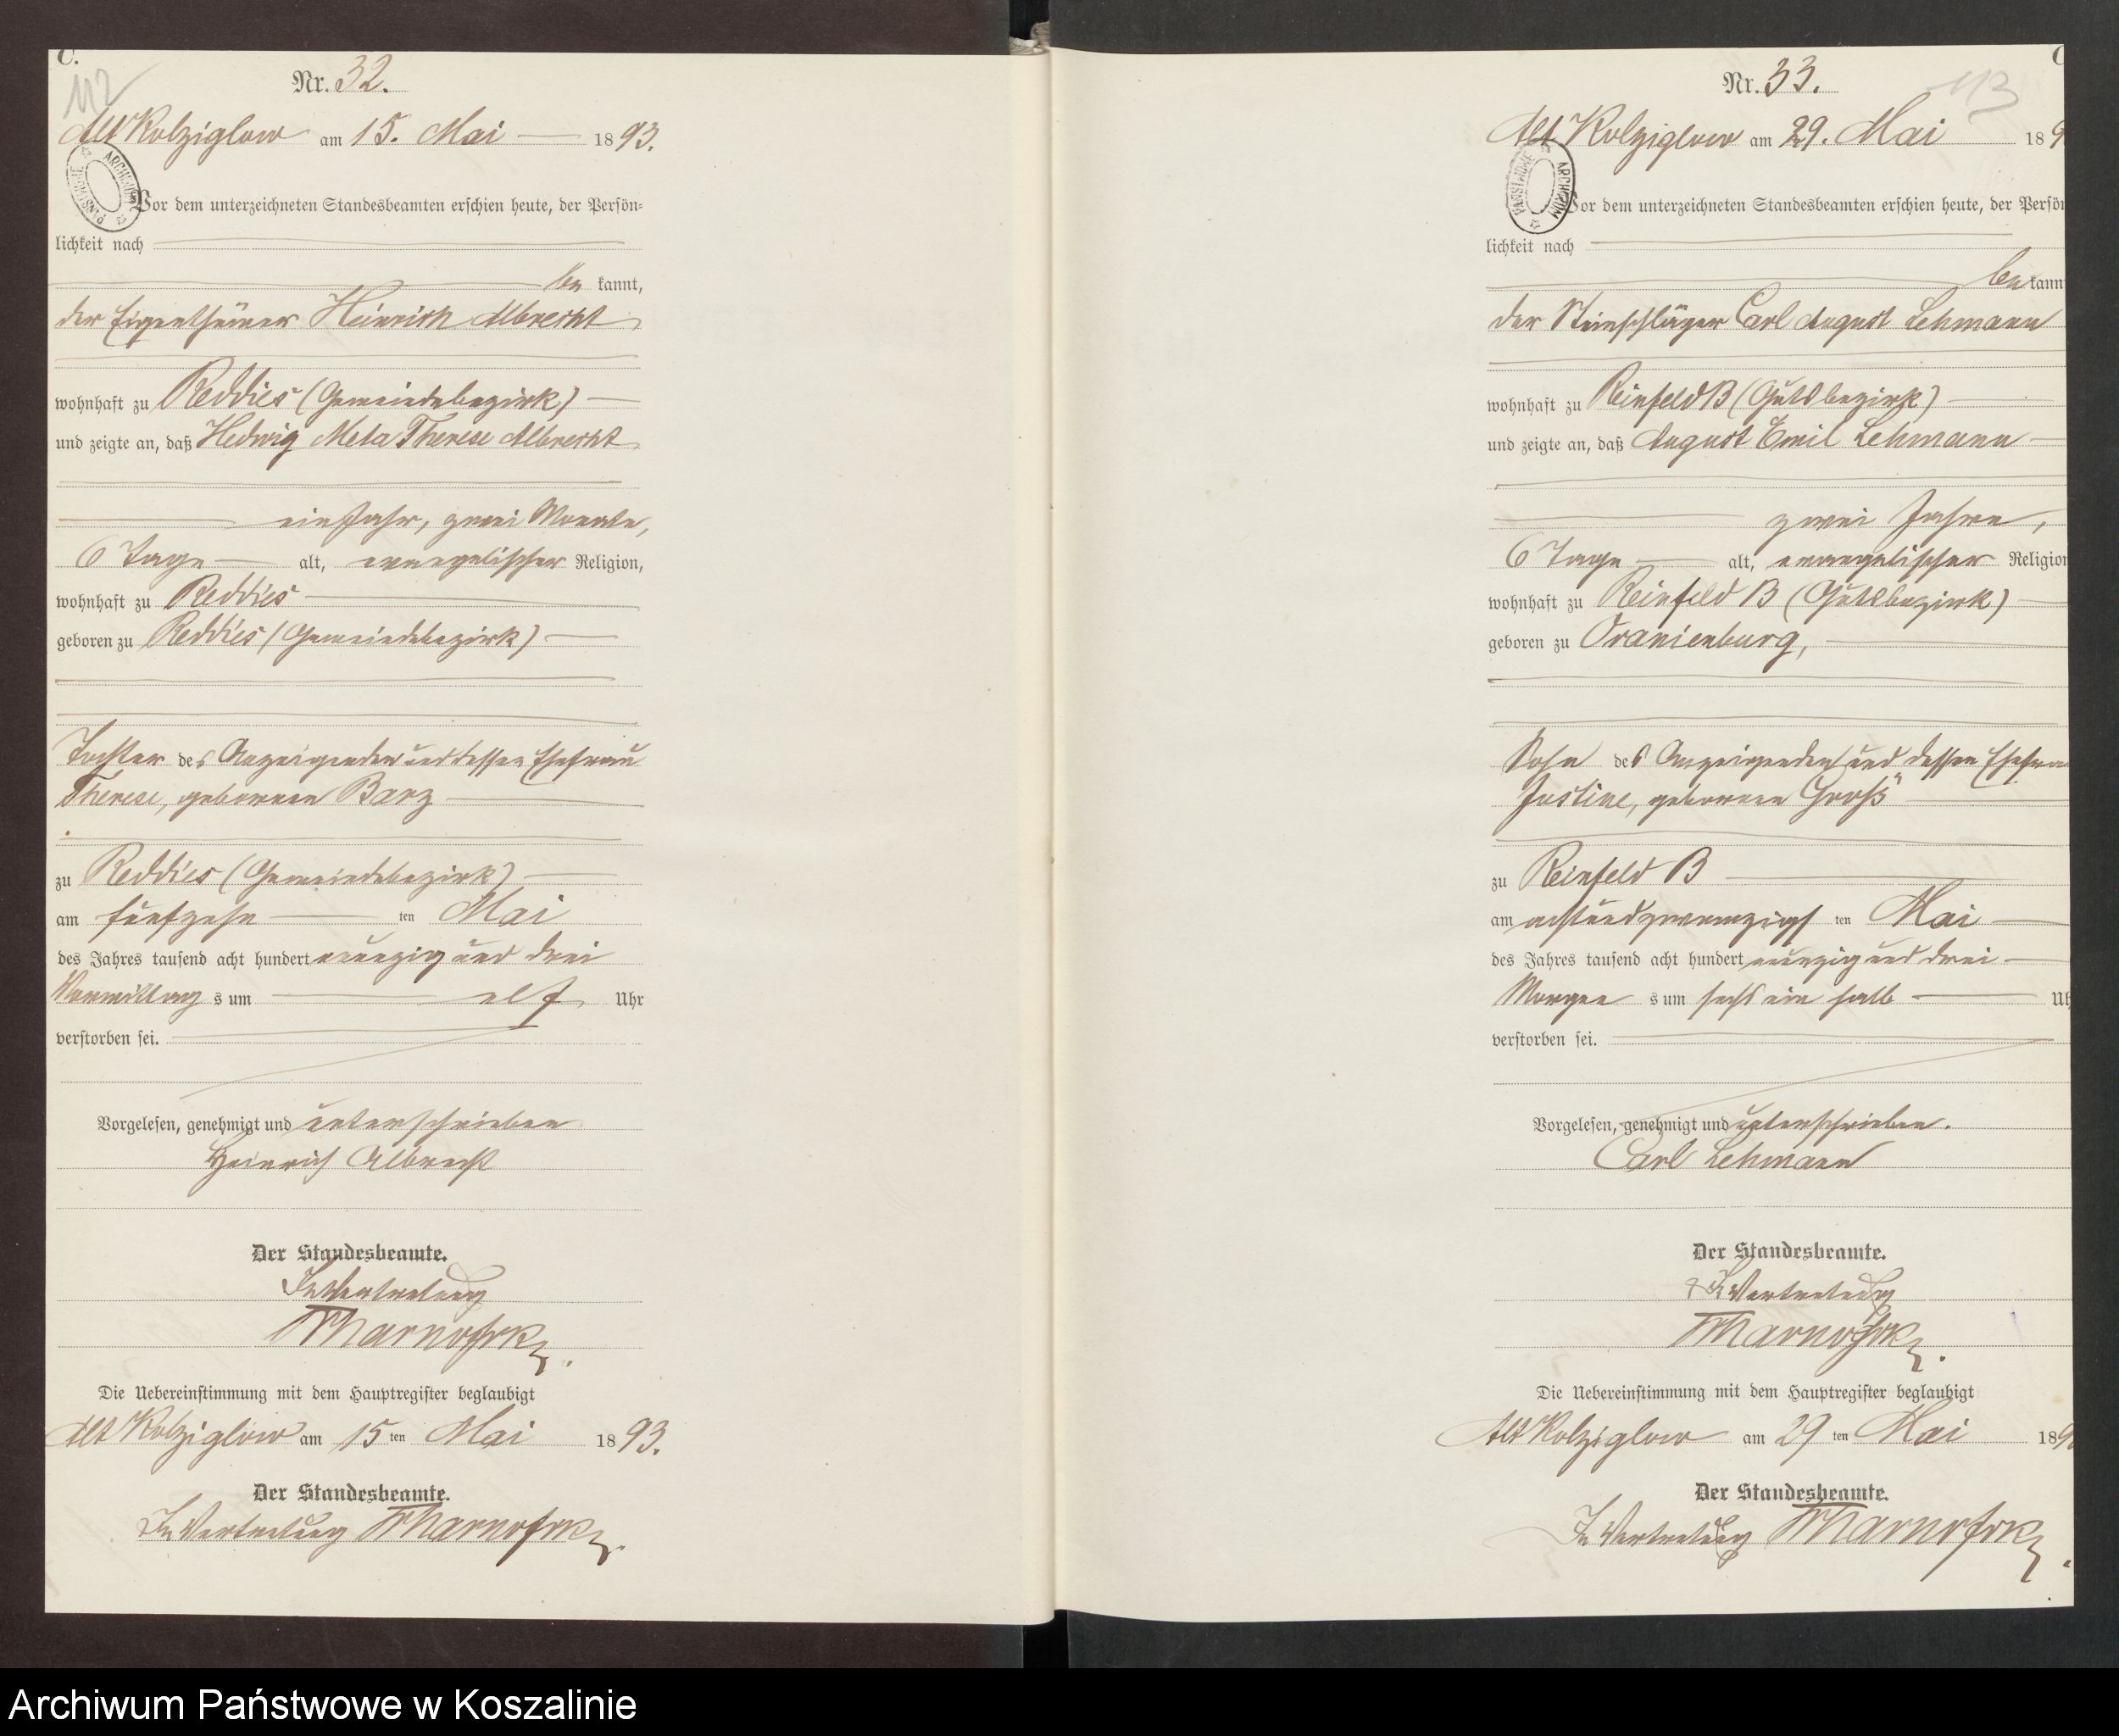 C.
112
Nr. 32.
Alt Kolziglow am 15. Mai 1893.
ARCHIWUM PAŃSTWOWE
Vor dem unterzeichneten Standesbeamten erschien heute, der Persön-
lichkeit nach
be kannt,
der Eigenthümer Heinrich Albrecht
wohnhaft zu Reddies (Gemeindebezirk)
und zeigte an, daß Hedwig Meta Therese Albrecht
ein Jahr, zwei Monate,
6 Tage alt, evangelischer Religion,
wohnhaft zu Reddies
geboren zu Reddies (Gemeindebezirk)
Tochter des Anzeigenden und dessen Ehefrau
Therese, geborenen Barz
zu Reddies (Gemeindebezirk)
am fünfzehn ten Mai
des Jahres tausend acht hundert neunzig und drei
Vormittag s um elf Uhr
verstorben sei.
Vorgelesen, genehmigt und unterschrieben
Heinrich Albrecht
Der Standesbeamte.
In Vertretung
Die Uebereinstimmung mit dem Hauptregister beglaubigt
Alt Kolziglow am 15 ten Mai 1893.
Der Standesbeamte.
In Vertretung
C
113
Nr. 33.
Alt Kolziglow am 29. Mai 189
ARCHIWUM PAŃSTWOWE
Vor dem unterzeichneten Standesbeamten erschien heute, der Persön
lichkeit nach
be kann
der Steinschläger Carl August Lehmann
wohnhaft zu Reinfeld B (Gutsbezirk)
und zeigte an, daß August Emil Lehmann
zwei Jahre,
6 Tage alt, evangelischer Religion
wohnhaft zu Reinfeld B (Gutsbezirk)
geboren zu Oranienburg,
Sohn des Anzeigenden und dessen Ehefrau
Justine, geborenen Groß
zu Reinfeld B
am achtundzwanzigs ten Mai
des Jahres tausend acht hundert neunzig und drei
Morgen s um sechs ein halb Uh
verstorben sei.
Vorgelesen, genehmigt und unterschrieben.
Carl Lehmann
Der Standesbeamte.
In Vertretung
Die Uebereinstimmung mit dem Hauptregister beglaubigt
Alt Kolziglow am 29 ten Mai 189
Der Standesbeamte.
In Vertretung
Archiwum Państwowe w Koszalinie